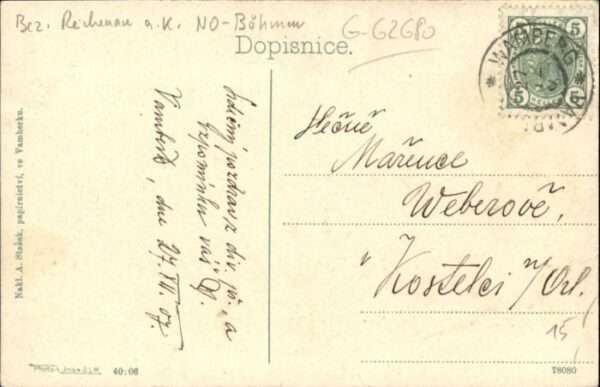 Bez. Reichenau a.K. NO-Böhmen
G-62680
Dopisnice.
5 5
WAMBERG
5 5
Srdečný pozdrav z div. př. a
vzpomínku váš
Vamberk, dne 27. VII. 07.
Slečně
Mařence
Weberově,
v Kostelci n/Orl.
15
Nakl. A. Stašek, papírnictví, ve Vamberku.
40:06
T8080